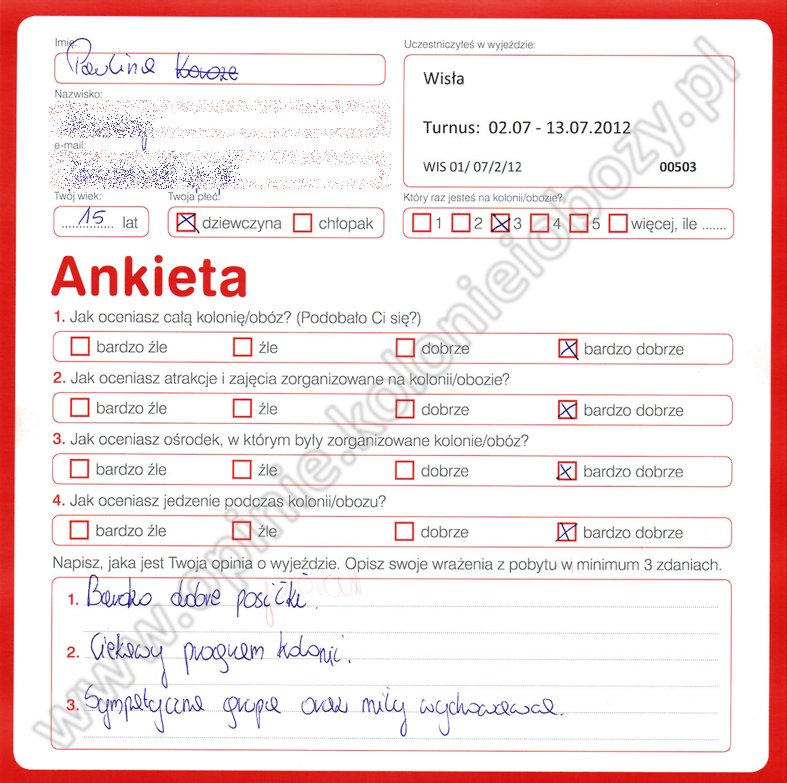 Imię:
Paulina
Uczestniczyłeś w wyjeździe:
Wisła
Nazwisko:
Turnus: 02.07 - 13.07.2012
e-mail:
WIS 01/ 07/2/12 00503
Twój wiek: Twoja płeć: Który raz jesteś na kolonii/obozie?
15 lat dziewczyna chłopak 1 2 3 4 5 więcej, ile .......
Ankieta
1. Jak oceniasz całą kolonię/obóz? (Podobało Ci się?)
bardzo źle źle dobrze bardzo dobrze
2. Jak oceniasz atrakcje i zajęcia zorganizowane na kolonii/obozie?
bardzo źle źle dobrze bardzo dobrze
3. Jak oceniasz ośrodek, w którym były zorganizowane kolonie/obóz?
bardzo źle źle dobrze bardzo dobrze
4. Jak oceniasz jedzenie podczas kolonii/obozu?
bardzo źle źle dobrze bardzo dobrze
Napisz, jaka jest Twoja opinia o wyjeździe. Opisz swoje wrażenia z pobytu w minimum 3 zdaniach.
1. Bardzo dobre posiłki.
2. Ciekawy program kolonii.
3. Sympatyczna grupa oraz miły wychowawca.
www.opinie.kolonieiobozy.pl